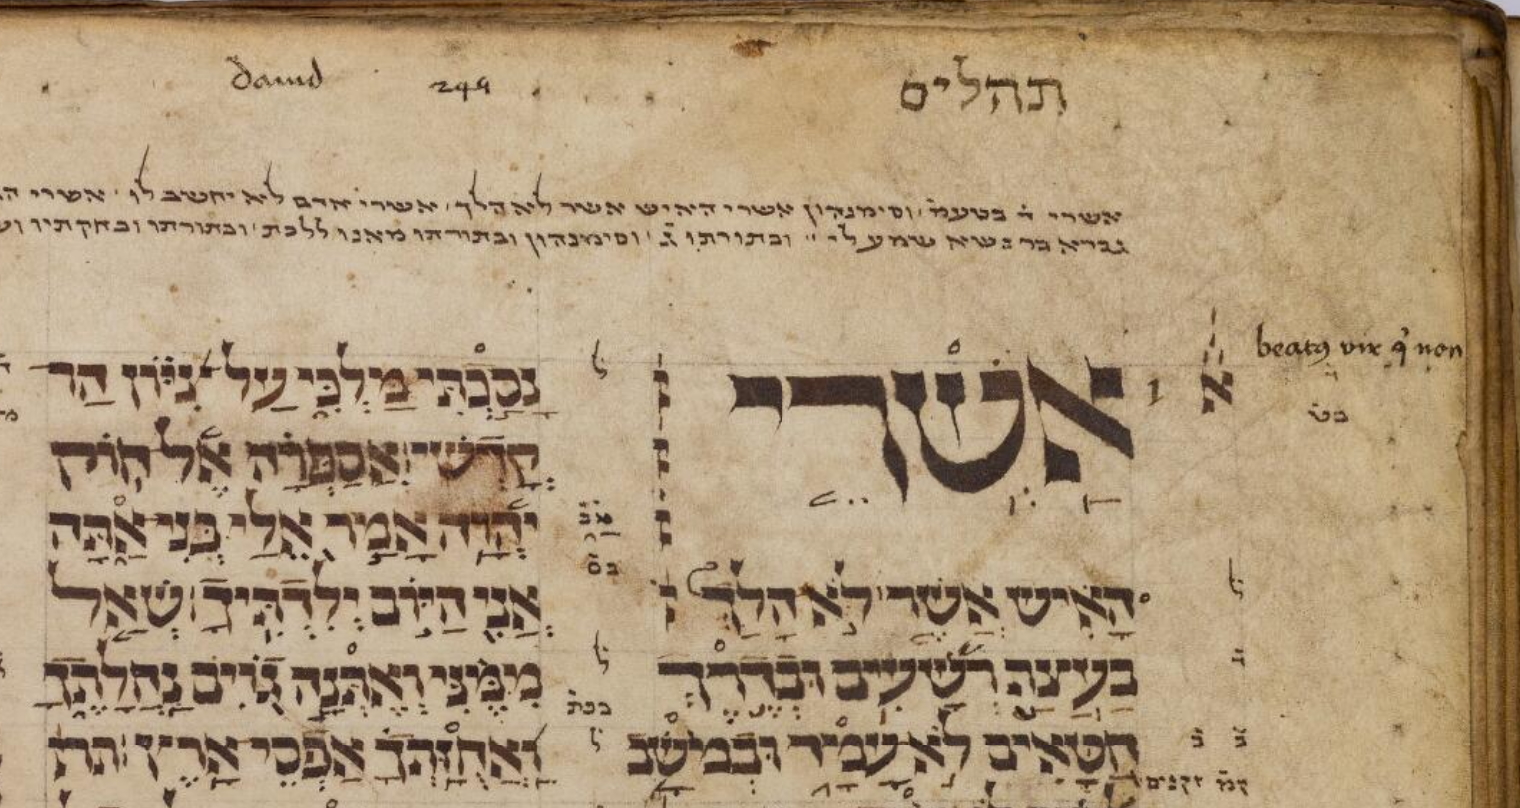 תהלים
249 dauid
אשרי ד̇ בטעמ̇ וסימנהון אשרי האיש אשר לא הלך אשרי אדם לא יחשב לו אשרי
גברא בר נשא שמע לי ובתורתו ג̇ וסימנהון ובתורתו מאנו ללכת ובתורתו ובחקתיו
beatus vir q non
א
אשרי
בט
הָאִישׁ אֲשֶׁר לֹא הָלַךְ
בַּעֲצַת רְשָׁעִים וּבְדֶרֶךְ
חַטָּאִים לֹא עָמָד וּבְמוֹשַׁב
קמ̇ זקפים
נָסַכְתִּי מַלְכִּי עַל צִיּוֹן הַר
קָדְשִׁי אֲסַפְּרָה אֶל חֹוק
יְהוָה אָמַר אֵלַי בְּנִי אַתָּה
אֲנִי הַיּוֹם יְלִדְתִּיךָ שְׁאַל
מִמֶּנִּי וְאֶתְּנָה גוֹיִם נַחֲלָתֶךָ
וַאֲחֻזָּתְךָ אַפְסֵי אָרֶץ